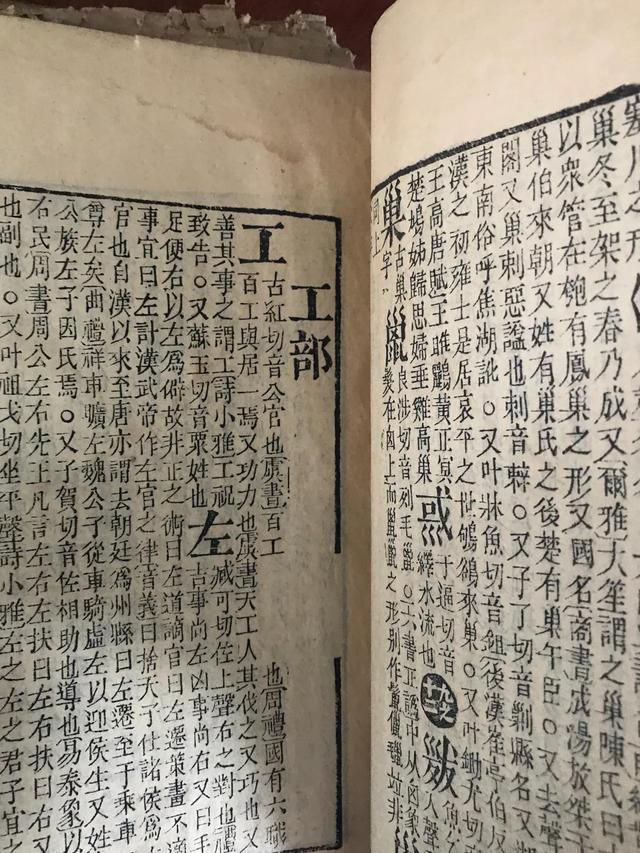 巢冬至架之春乃成又爾雅大笙謂之巢陳氏曰
以衆管在匏有鳳巢之形又國名商書成湯放桀于
巢伯來朝又姓有巢氏之後楚有巢午臣〇又去聲
閣又巢刺惡諡也刺音辢〇又子了切音剿縣名又湖
東南俗呼焦湖訛〇又叶牀魚切音鉏後漢崔亭伯反
漢之初雍士是居哀平之世鴝鵒來巢〇又叶鋤尤切
王高唐賦王雎鸝黃正冥
楚鳩姊歸思婦垂雞高巢
于逼切音
水流也
古巢字
良涉切音列毛巤〇六書正譌中从囟象
巤在囟上而巤髦之形別作
工部
工 古紅切音公官也虞書百工 也周禮國有六職
百工與居一焉又功力也虞書天工人其代之又巧也又
善其事之謂工詩小雅工祝
致告〇又蘇玉切音粟姓也
左 臧可切佐上聲右之對也禮
吉事尚左凶事尚右又曰手
足便右以左爲僻故非正之術曰左道謫官曰左遷策畫不適
事宜曰左計漢武帝作左官之律音義曰捨天子仕諸侯爲左
官也自漢以來至唐亦謂去朝廷爲州縣曰左遷至于乘車
尊左矣曲禮祥車曠左魏公子從車騎虛左以迎侯生又姓
公族左子因氏焉〇又子賀切音佐相助也導也易泰象以
右民周書周公左右先王凡言左右左扶曰左右扶曰右又
也副也〇又叶祖戈切坐平聲詩小雅左之左之君子宜之